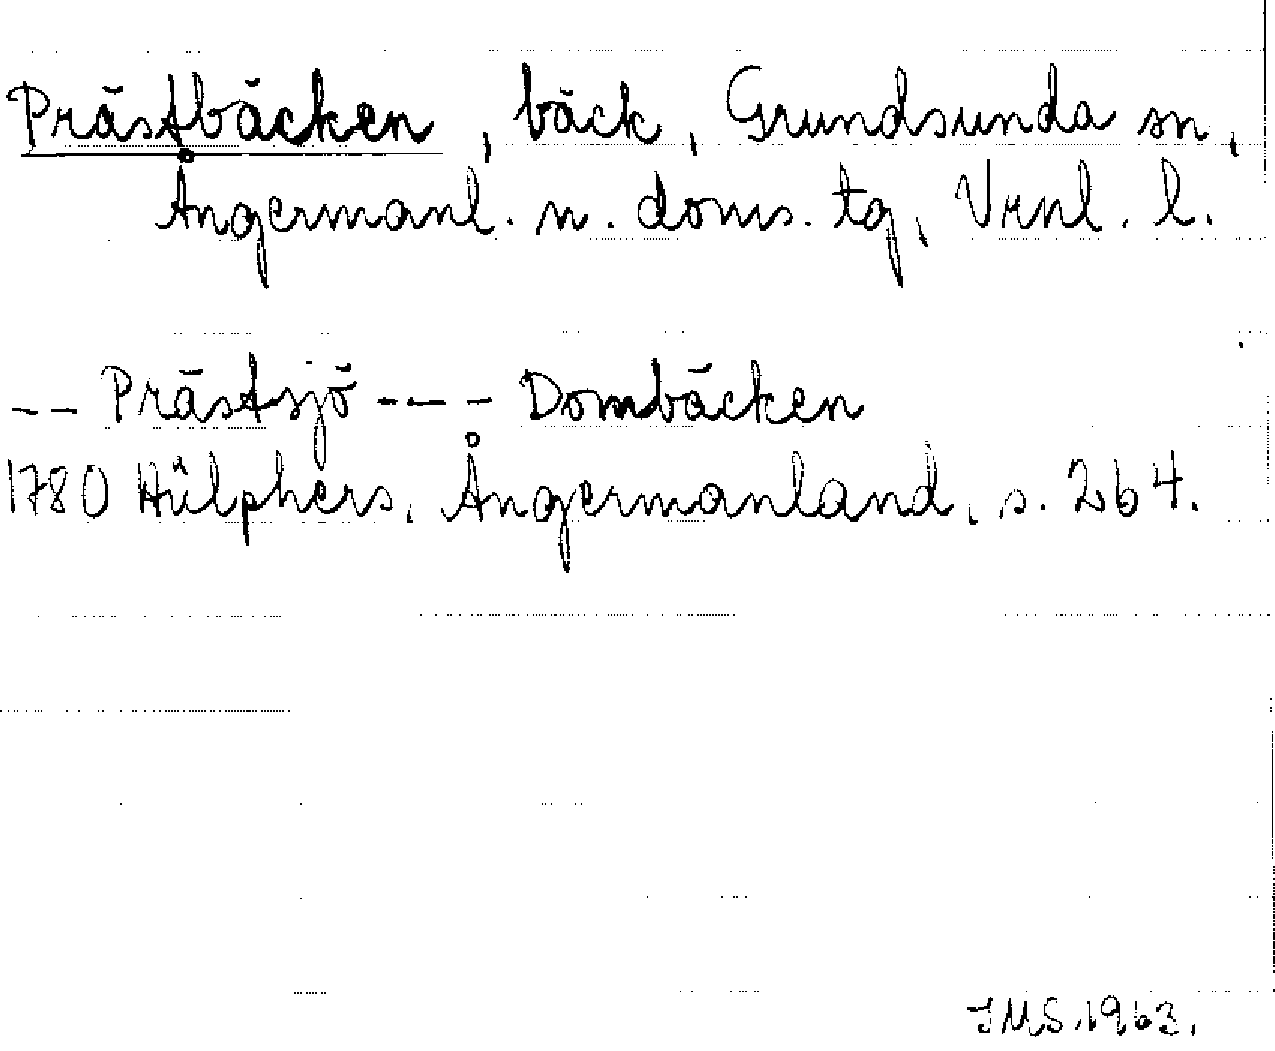 Prästbäcken, bäck, Grundsunda sn,
Ångermanl. n. doms. tg, Vrnl. l.
-- Prästsjö --- Dombäcken
1780 Hülphers, Ångermanland, s. 264.
JMS.1963.